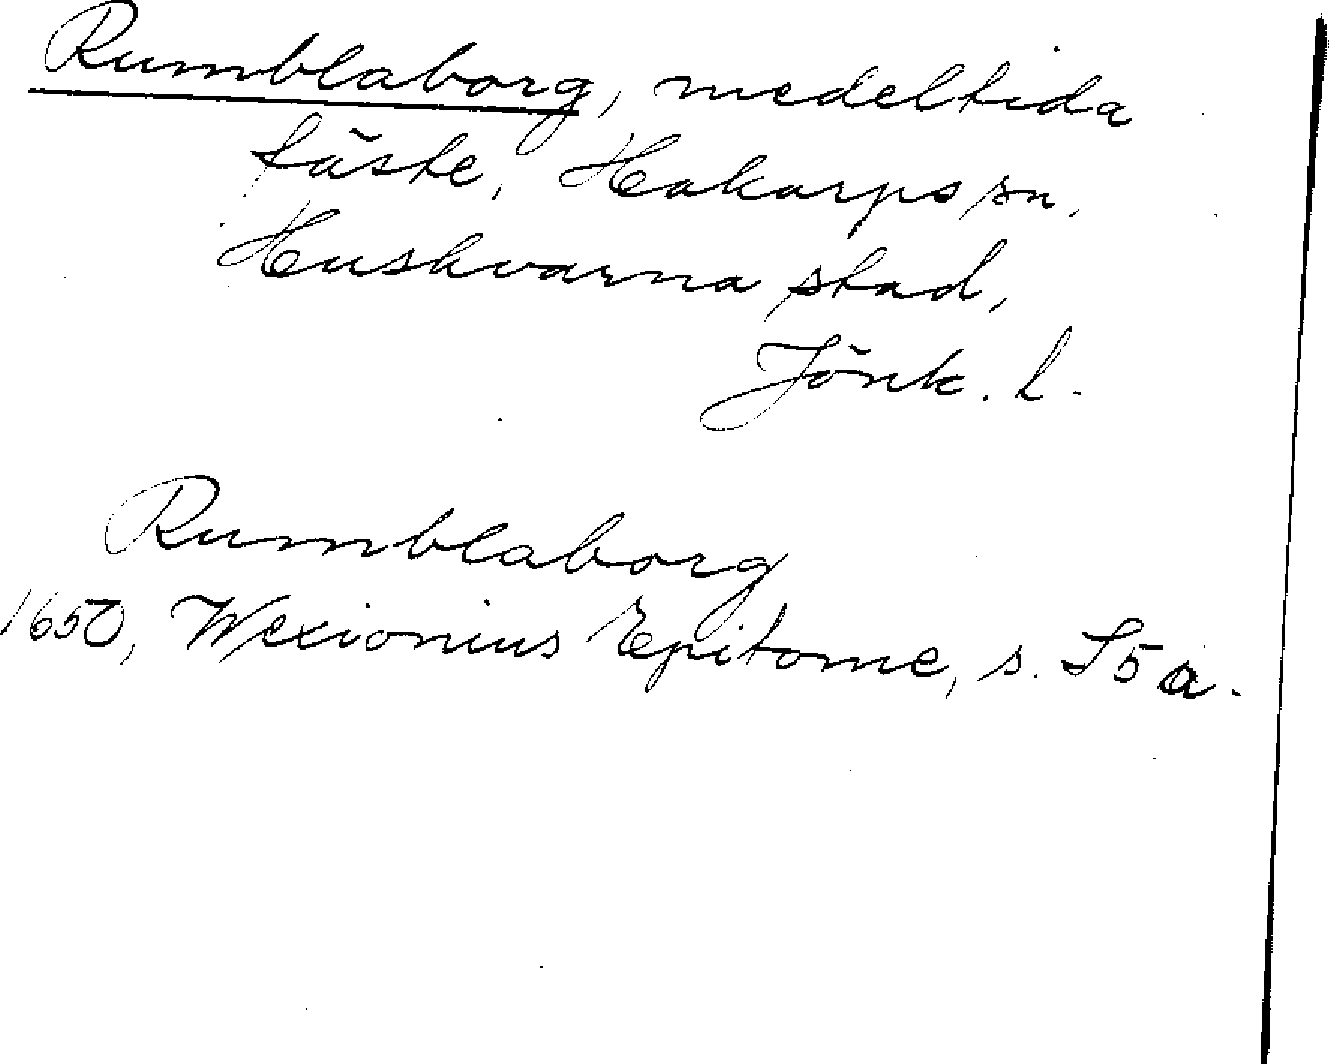 Rumblaborg, medeltida
fäste, Hakarps sn,
Huskvarna stad,
Jönk. l.
Rumblaborg
1650, Wexionius Epitome, s. S 5 a.